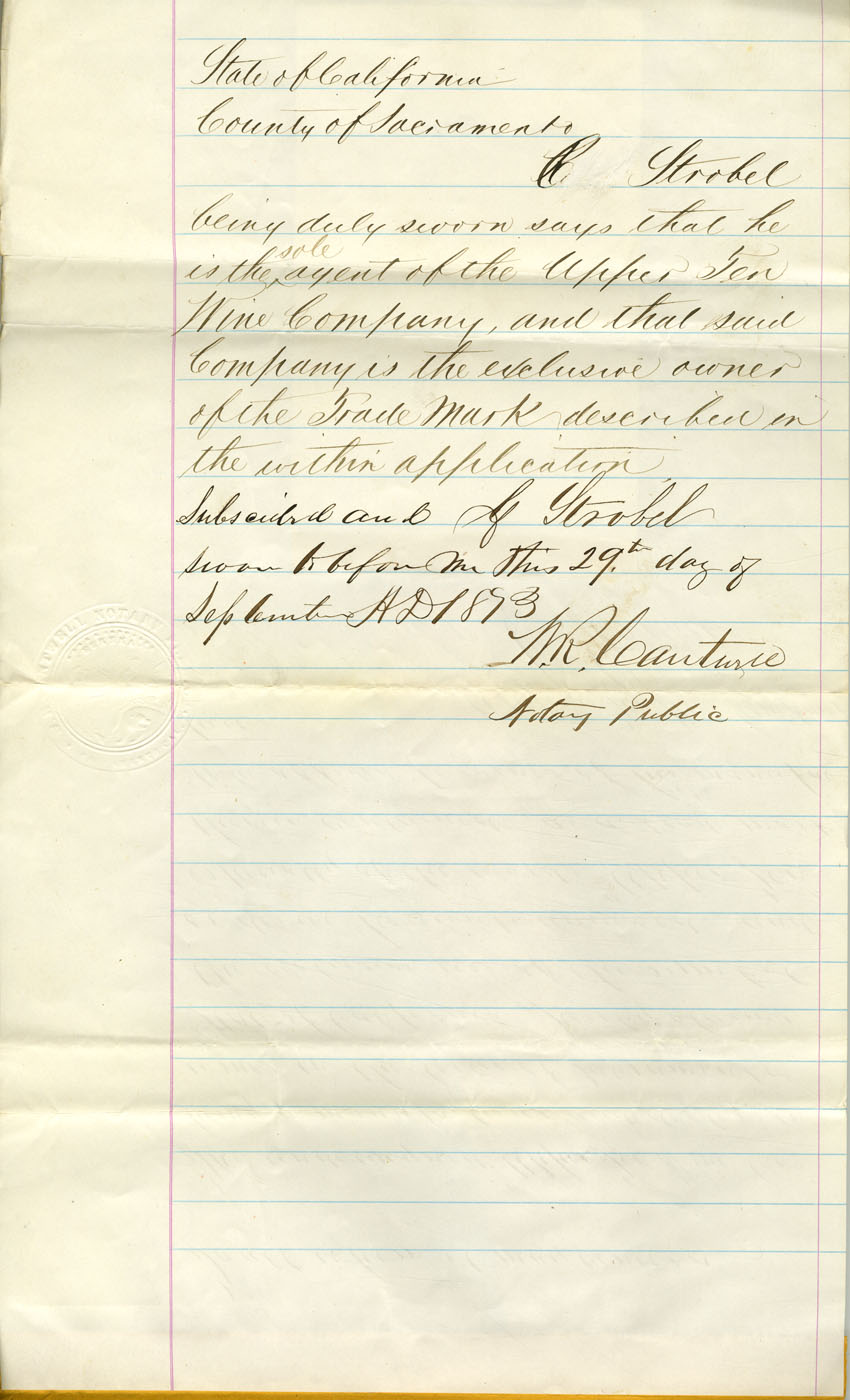 State of California
County of Sacramento
C Strobel
being duly sworn says that he
sole
is the agent of the Upper Ten
Wine Company, and that said
Company is the exclusive owner
of the Trade Mark described in
the within application
Subscribed and C Strobel
sworn to before me this 29th day of
September AD 1873
W.R. Cantwell
Notary Public
NOTARY